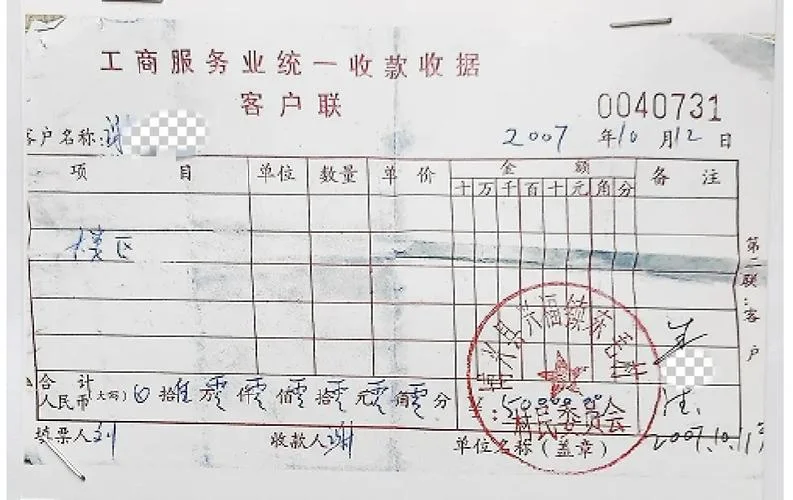 工商服务业统一收款收据
客户联
0040731
客户名称:谢
2007年10月12日
项目 单位 数量 单价 金额 备注
十万千百十元角分
楼区
第二联:客户
博兴县兴福镇
村民委员会
合计
人民币(大写) 拾 万零仟零佰零拾零元零角零分
¥:50000.00
2007.10.1
填票人刘
收款人谢
单位名称(盖章)